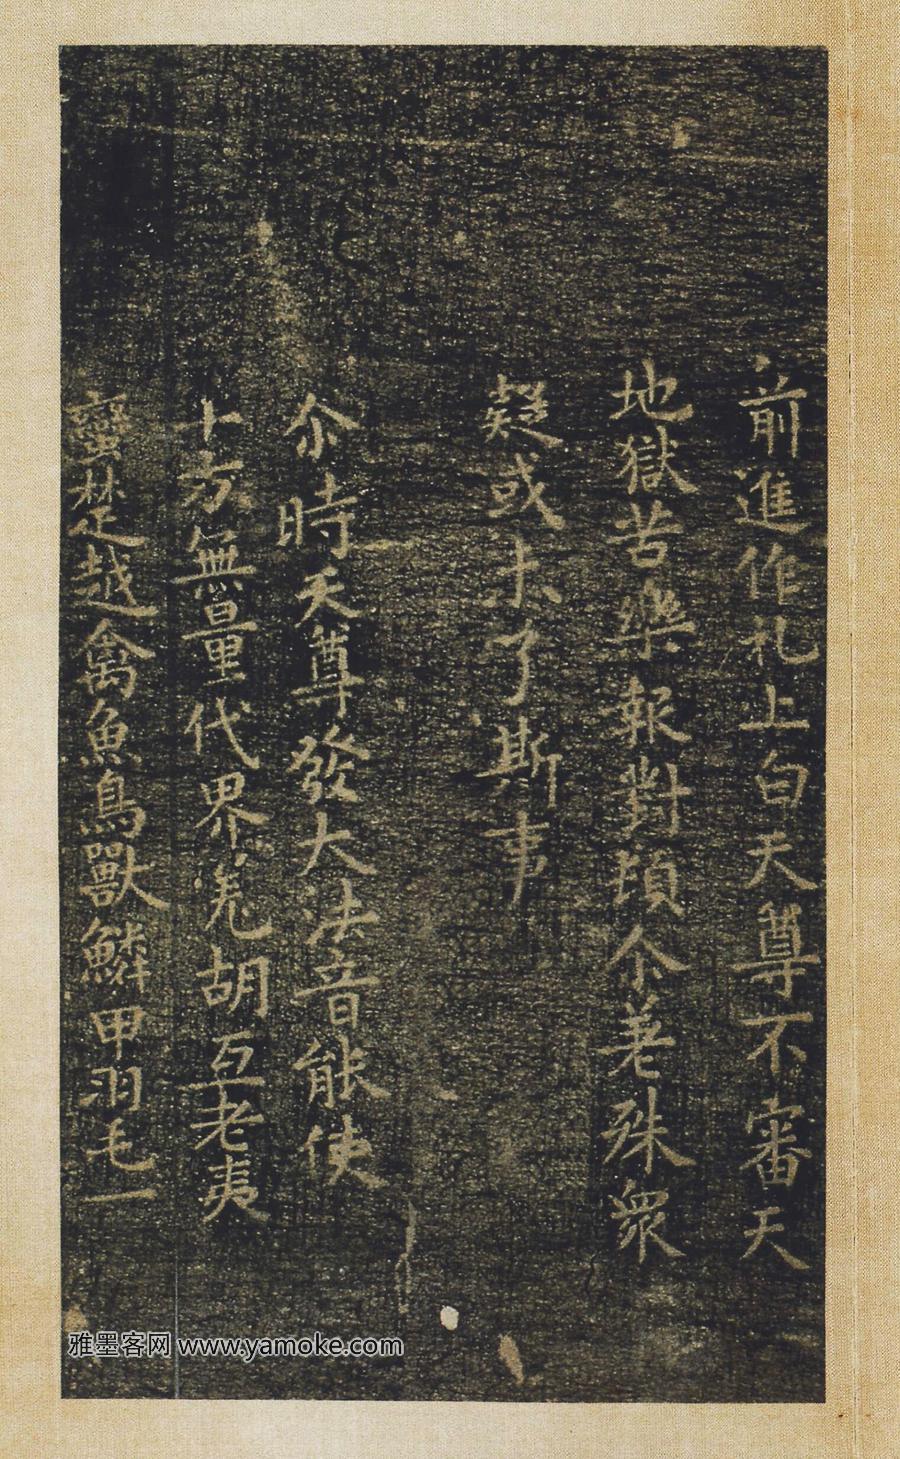 前進作礼上白天尊不審天
地獄苦樂報對頓尒差殊衆
疑或未了斯事
尒時天尊發大法音能使
十方無量代界羗胡互老夷
蠻楚越禽魚鳥獸鱗甲羽毛一
雅墨客网 www.yamoke.com